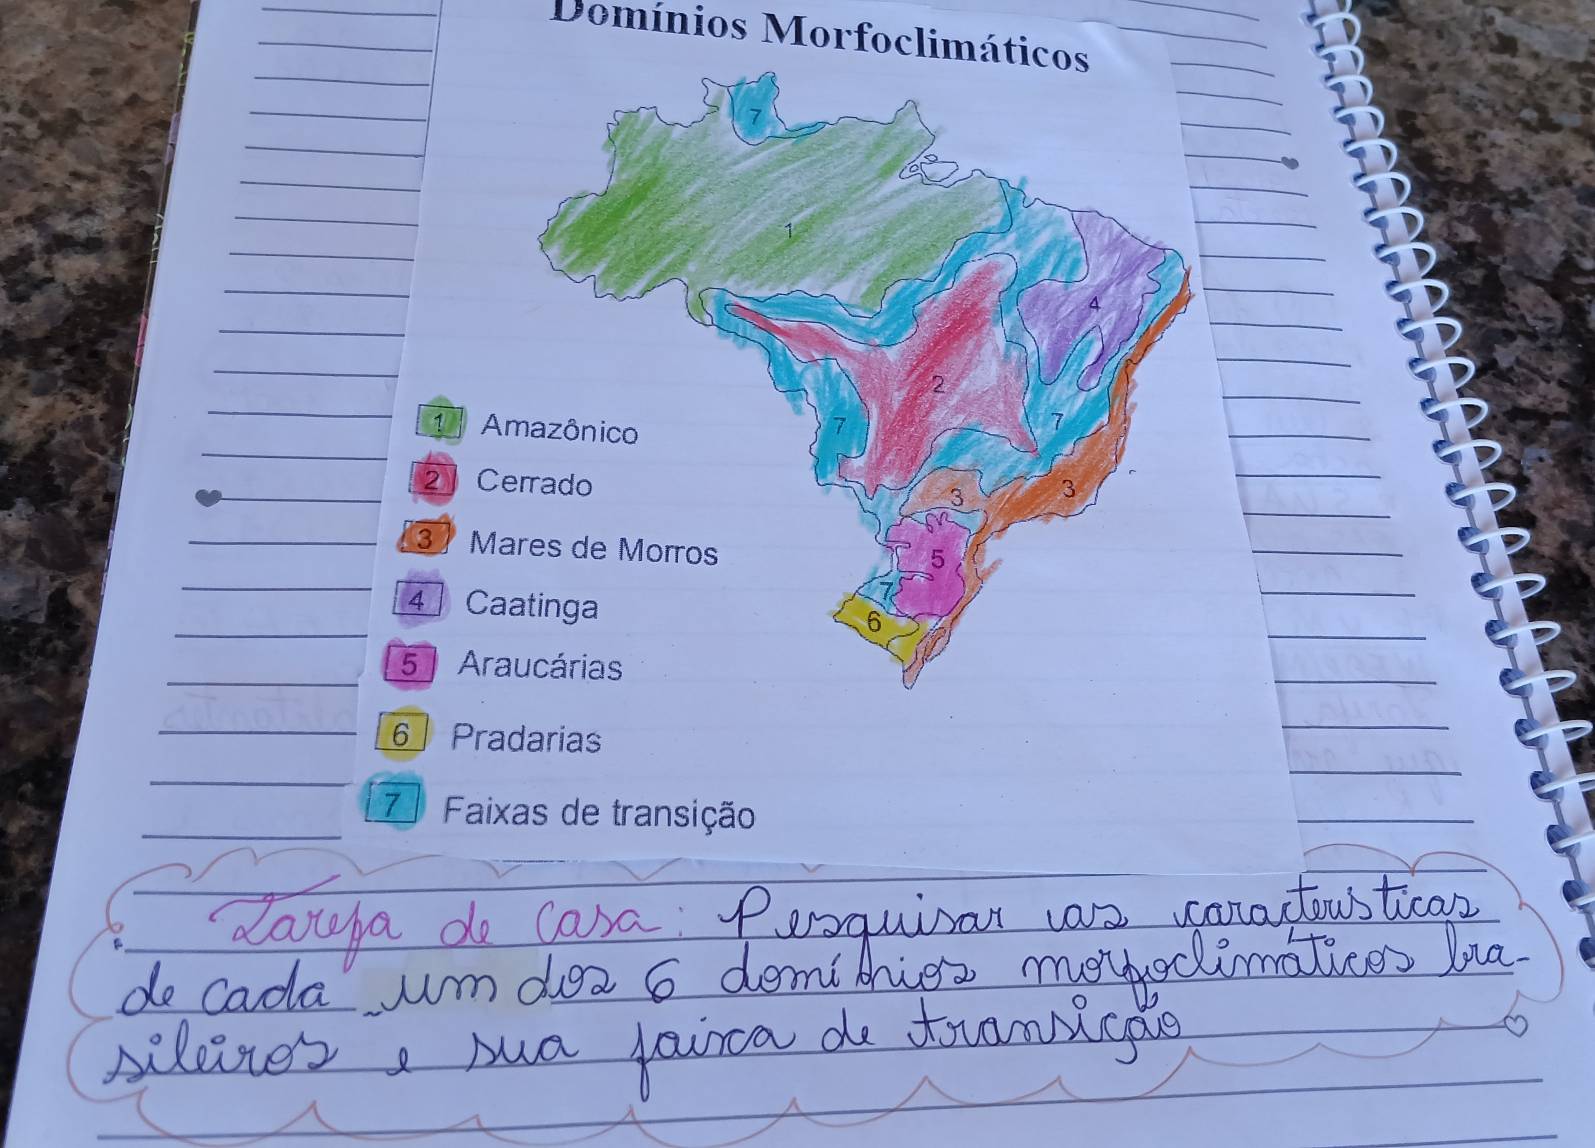 Domínios Morfoclimáticos
7
1
4
2
7
7
3
3
5
7
6
1 Amazônico
2 Cerrado
3 Mares de Morros
4 Caatinga
5 Araucárias
6 Pradarias
7 Faixas de transição
Tarefa de Casa: Pesquisar as características
de cada um dos 6 domínios morfoclimáticos bra-
sileiros e sua faixa de transição